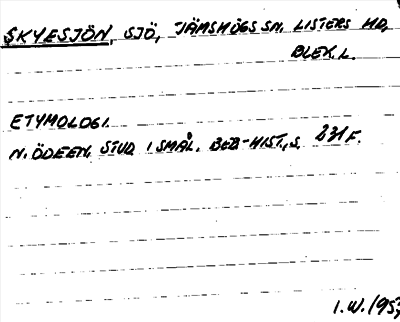 SKYESJÖN, SJÖ, JÄMSHÖGS SN, LISTERS HD,
BLEK. L.
ETYMOLOGI.
N. ÖDEEN, STUD. I SMÅL. BEB-HIST., S. 231 F.
I. W. 1957